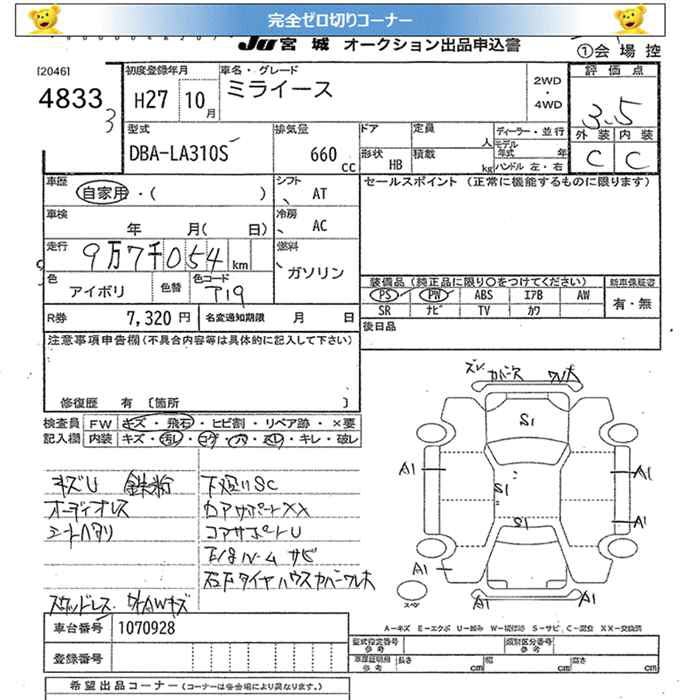 完全ゼロ切りコーナー
JU宮城 オークション出品申込書
①会場控
[2046]
4833
3
初度登録年月
H27 10月
車名・グレード
ミライース
2WD
・
4WD
評価点
3.5
外装 内装
C C
型式
DBA-LA310S
排気量
660 CC
ドア
形状 HB
定員 人
積載 kg
ディーラー・並行
モデル年式 年
ハンドル 左・右
車歴
自家用・( )
シフト
AT
セールスポイント (正常に機能するものに限ります)
車検
年 月( 日)
冷房
AC
走行
9万7千054 km
燃料
ガソリン
色
アイボリ
色替
色コード
T19
装備品(純正品に限り○をつけてください)
新車保証書
PS PW ABS エアB AW
SR ナビ TV カワ
有・無
R券 7,320円
名変通知期限 月 日
後日品
注意事項申告欄(不具合内容等は具体的に記入して下さい)
修復歴 有 〔箇所 〕
検査員記入欄
FW キズ・飛石・ヒビ割・リペア跡・×要
内装 キズ・汚レ・コゲ・穴・スレ・キレ・破レ
キズU 鉄粉
オーディオレス
シートヘタリ
下廻りSC
コアサポートXX
コアサポートU
スタッドレス
AWキズ
右下タイヤハウスカバーワレ大
ズレ カバーヌケ ワレ大
S1
A1
A1
S1
A1
S1
A1
A1
A1
スペア
A-キズ E-エクボ U-凹み W-補修跡 S-サビ C-腐食 XX-交換済
車台番号 1070928
登録番号
型式指定番号 参考
類別区分番号 参考
車庫証明用 参考 長さ cm 幅 cm 高さ cm
希望出品コーナー(コーナーは各会場により異なります。)